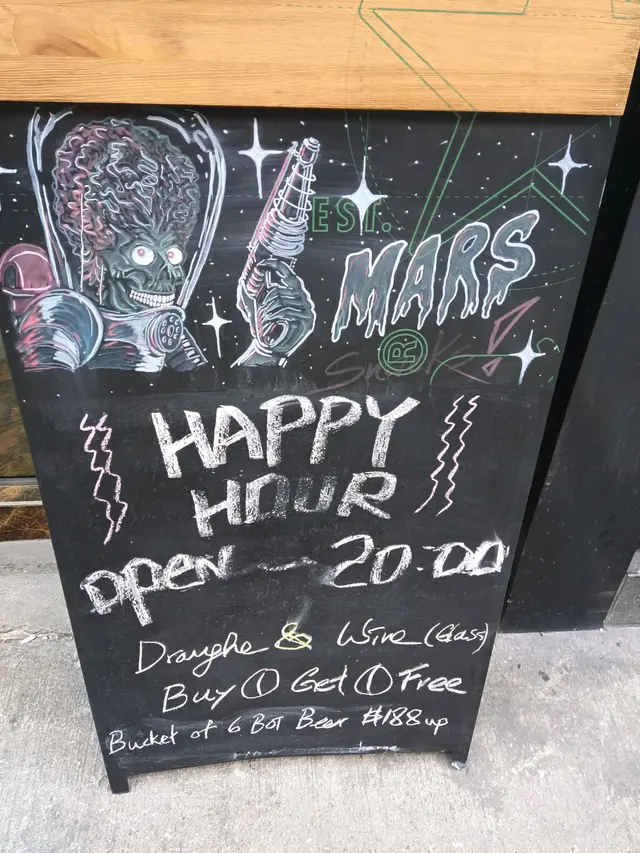 EST.
MARS
®
HAPPY
HOUR
OPEN — 20:00
Draughe & Wine (Glass)
Buy ① Get ① Free
Bucket of 6 Bot Beer $188 up